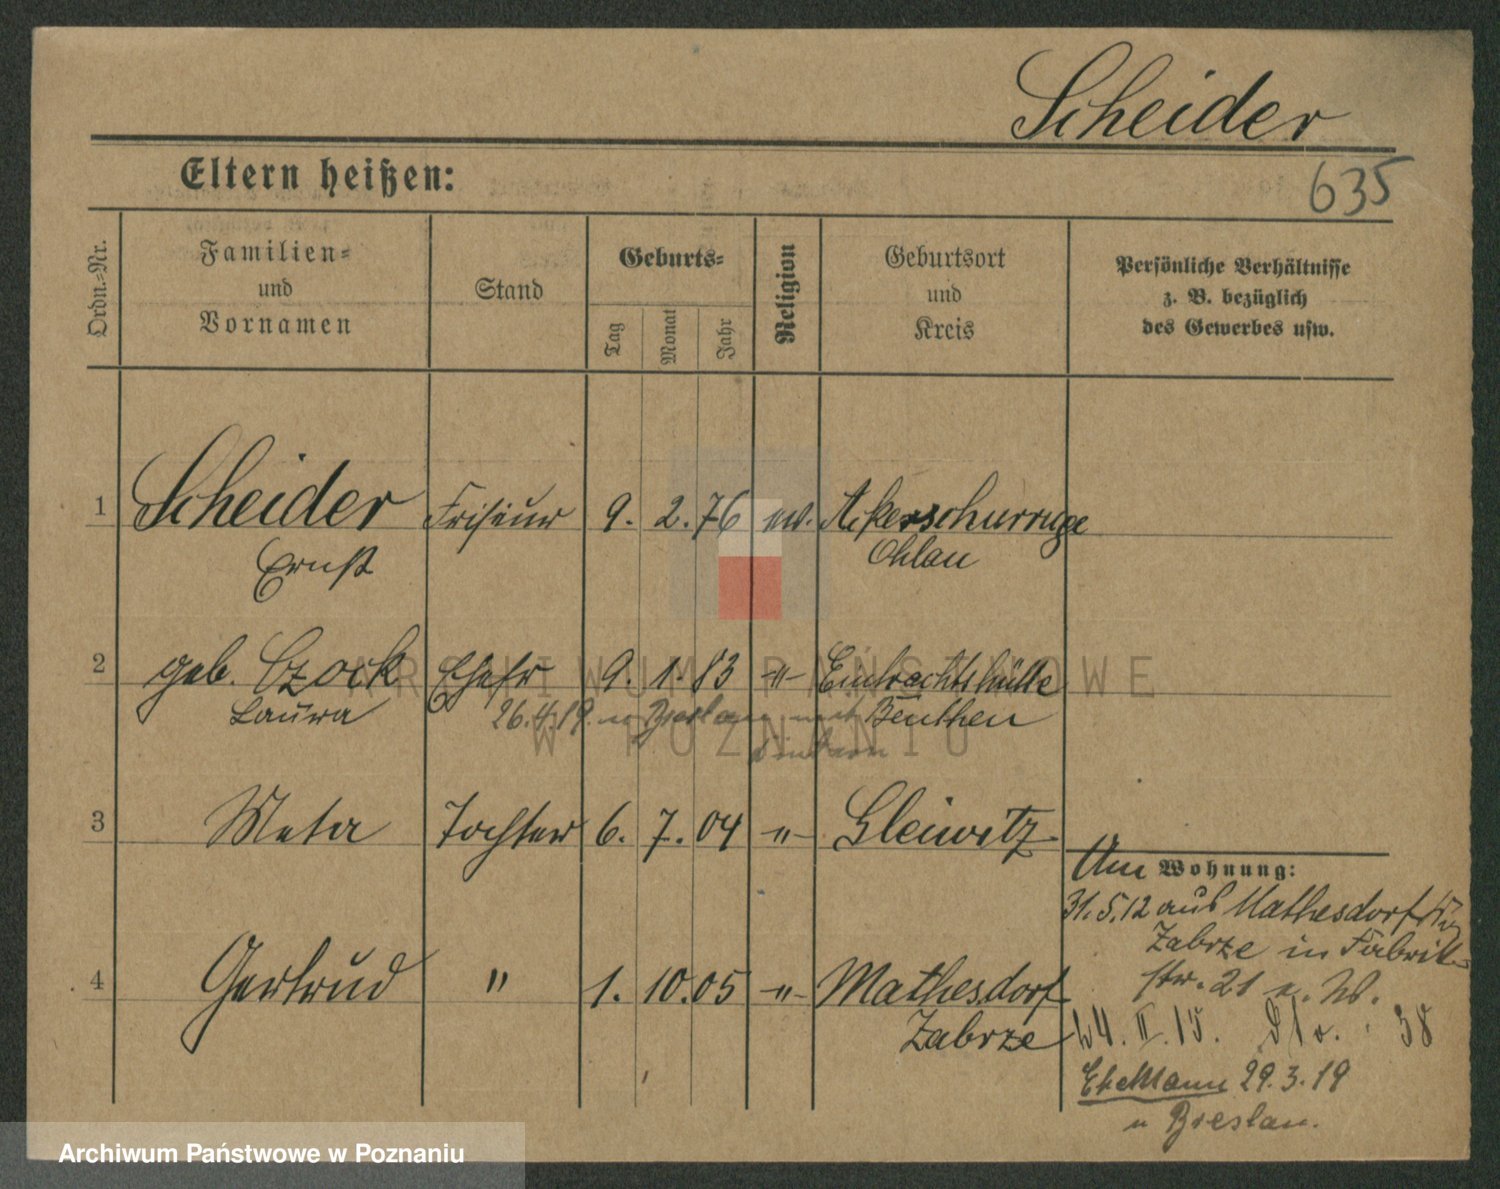 Scheider
Eltern heißen:
635
Ordn.-Nr.
Familien-
und
Vornamen
Stand
Geburts-
Tag
Monat
Jahr
Religion
Geburtsort
und
Kreis
Persönliche Verhältnisse
z. B. bezüglich
des Gewerbes usw.
1 Scheider Friseur 9. 2. 76 ev. Akerschurruge
Ernst Ohlau
2 geb. Czock Ehefr 9. 1. 83 -"- Eintrachtshütte
Laura Beuthen
26.4.19. n Breslau mit
Kindern
3 Meta Tochter 6. 7. 04 -"- Gleiwitz
4 Gertrud " 1. 10. 05 -"- Mathesdorf
Zabrze
Am Wohnung:
31.5.12 aus Mathesdorf
Zabrze in Fabrik-
str. 21 z. W.
24. II. 15. 38
Ehemann 29.3.19
n Breslau.
ARCHIWUM PAŃSTWOWE
W POZNANIU
Archiwum Państwowe w Poznaniu